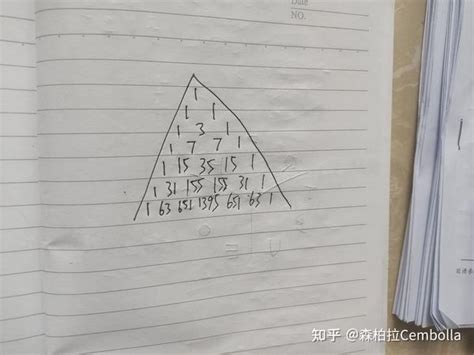 Date
NO.
1
1 1
1 3 1
1 7 7 1
1 15 35 15 1
1 31 155 155 31 1
1 63 651 1395 651 63 1
知乎 @森柏拉Cembolla